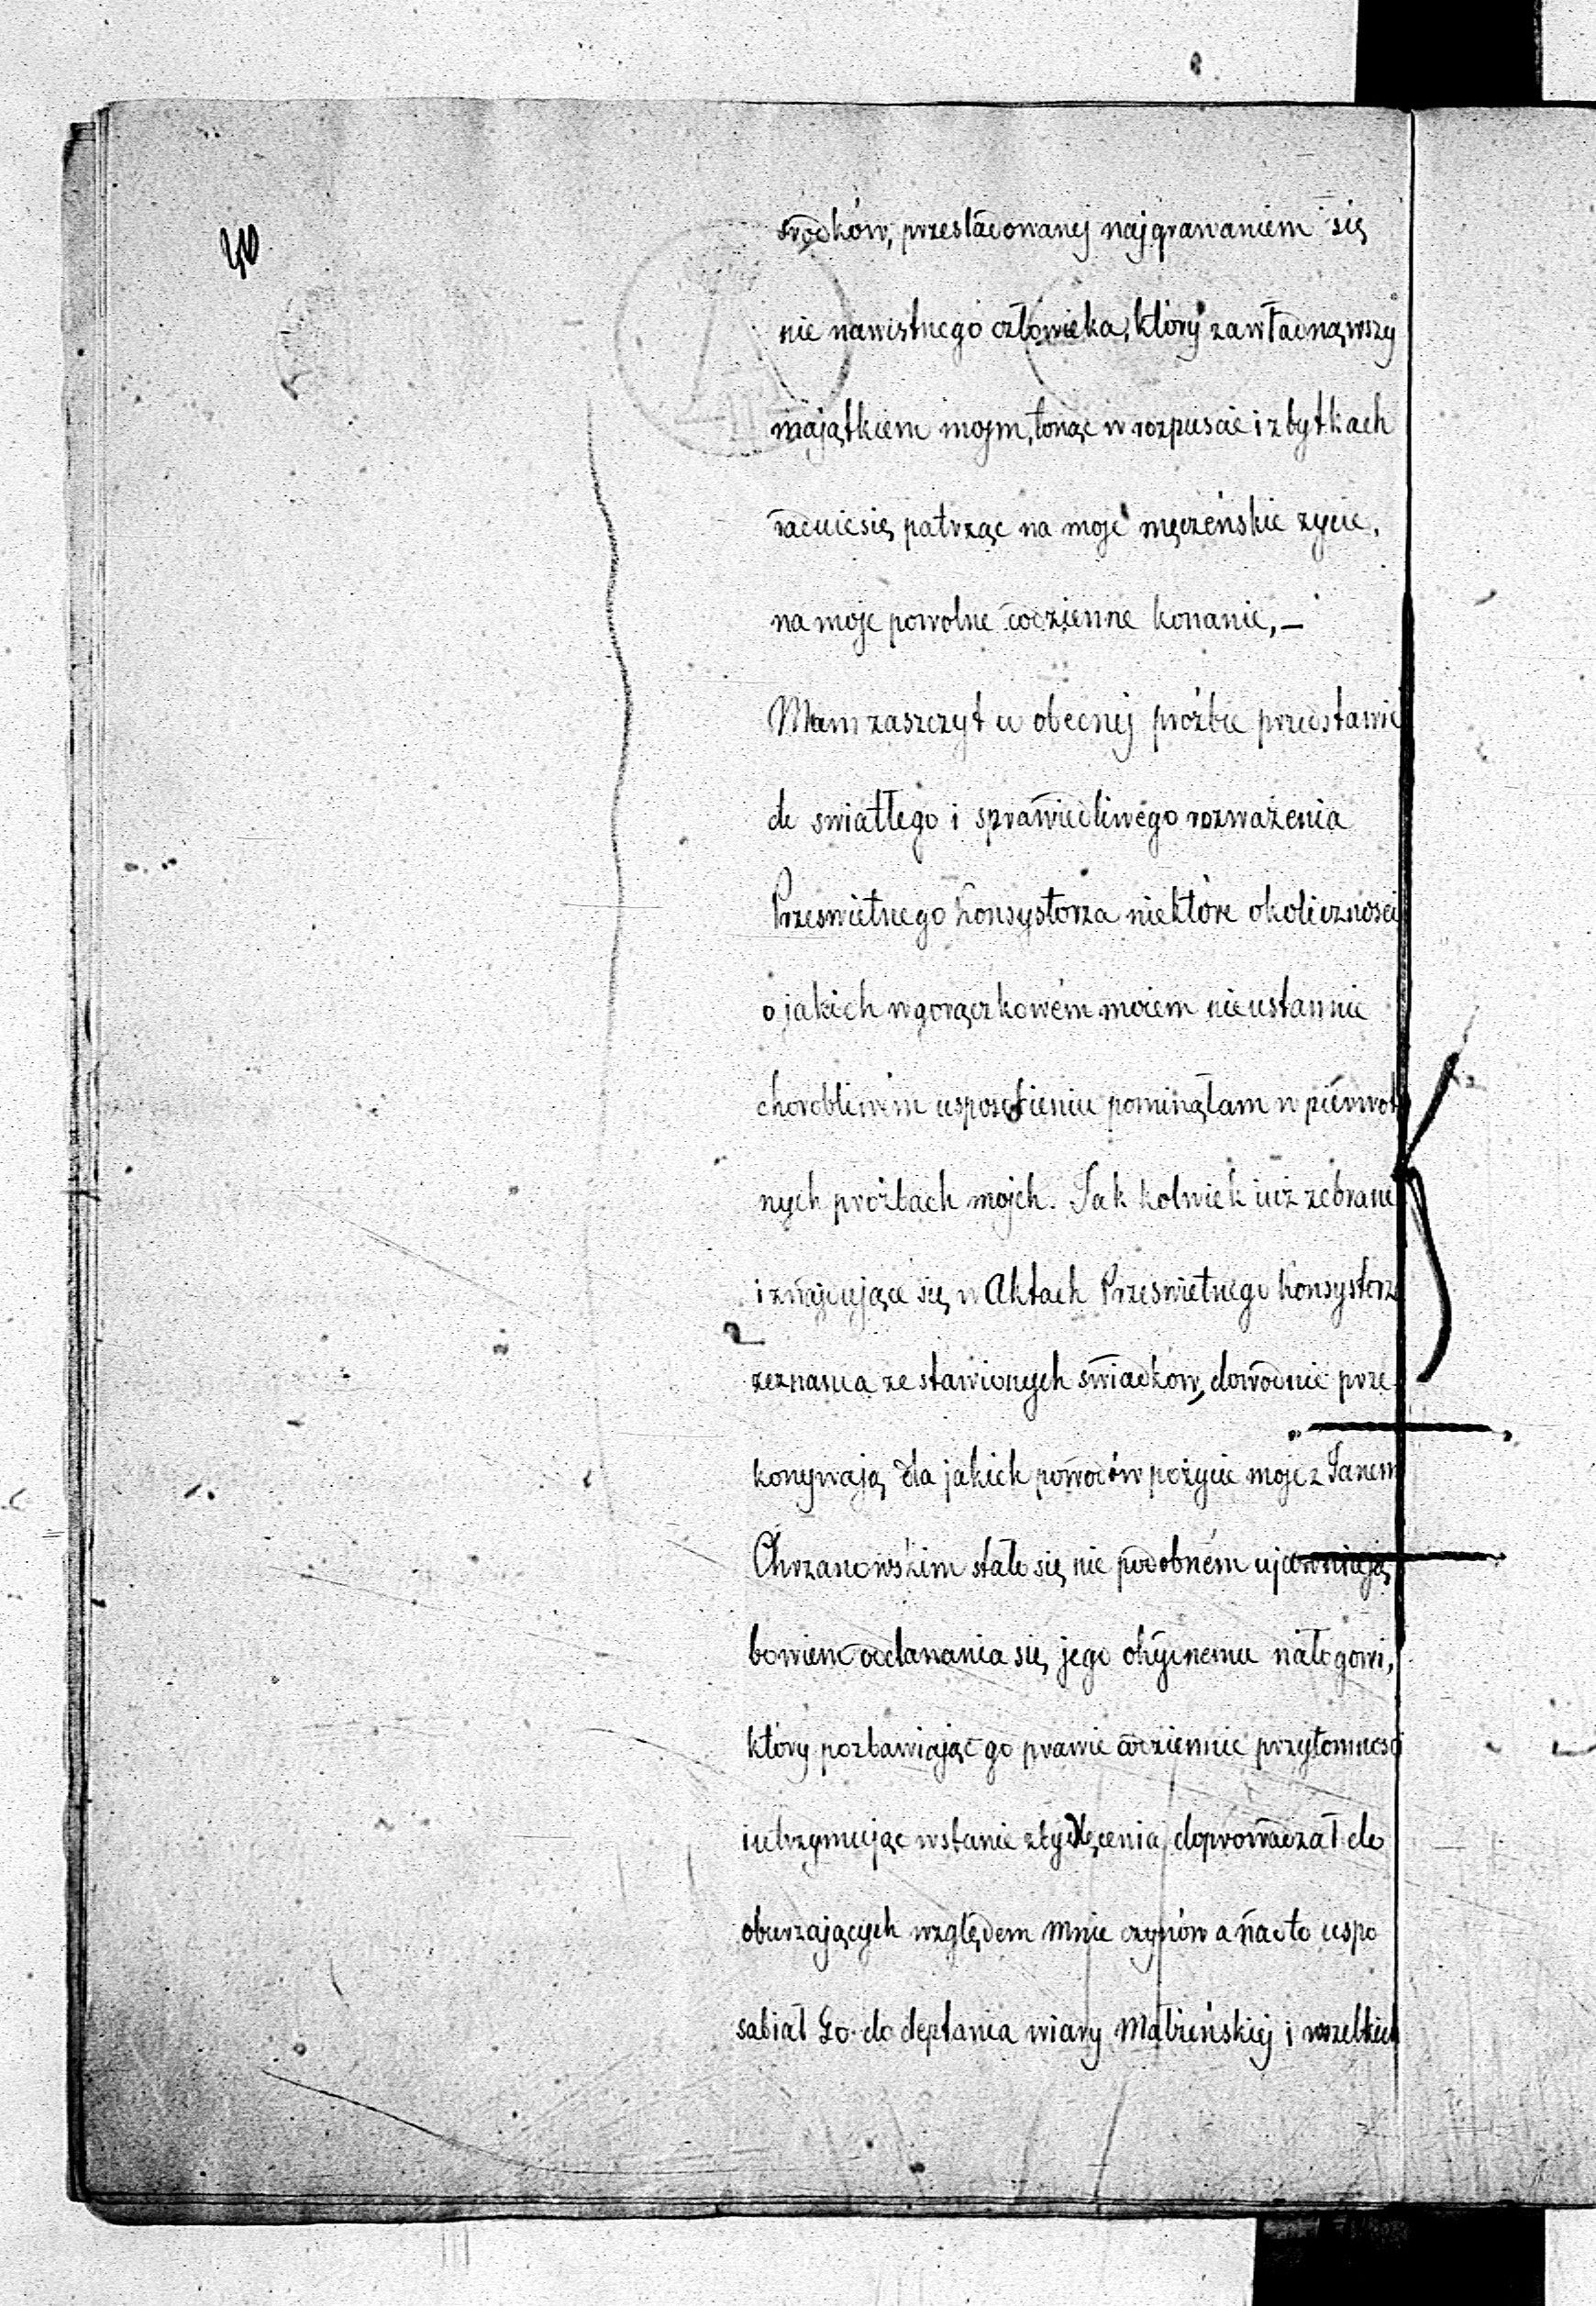 40
srodków, prześladowanej najgrawaniem się
nie nawistnego człowieka, który zawładnąwszy
majątkiem mojm, tonąc w rozpuscie i zbytkach
raduie się patrząc na moje męczeńskie zycie,
na moje powolne codzienne konanie, –
Mam zaszczyt w obecnej prożbie przedstawić
do swiatłego i sprawiedliwego rozważenia
Przeswietnego Konsystorza niektóre okoliczności
o jakich w gorączkowém moiem nieustannie
chorobliwém usposobieniu pominęłam w piérwot
nych prożbach mojch. Jak kolwiek iuż zebrane
i znajdujące się w Aktach Przeswietnego Konsystorz
zeznania ze stawionych swiadków, dowodnie prze
konywają dla jakich powodów pożycie moje z Janem
Chrzanowskim stało się nie podobném ujawniają
bowiem oddawania się jego ohydnemu nałogowi,
który pozbawiając go prawie codziennie przytomnosci
i utrzymując w stanie zbydlęcenia, doprowadzał do
oburzających względem mnie czynów a nadto uspo
sabiał Go do deptania wiary Małżeńskiej i wszelkich